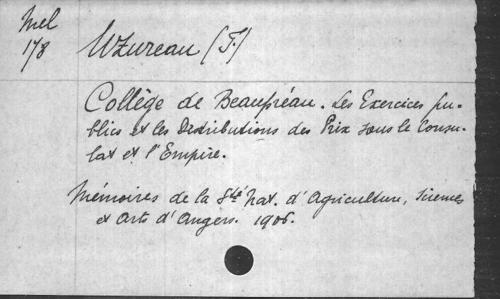 Mel
178
Uzureau (F.)
Collège de Beaupréau. Les Exercices pu-
blics et les Distributions des Prix sous le Consu-
lat et l'Empire.
Mémoires de la Sté Nat. d'Agriculture, Sciences
et Arts d'Angers. 1906.